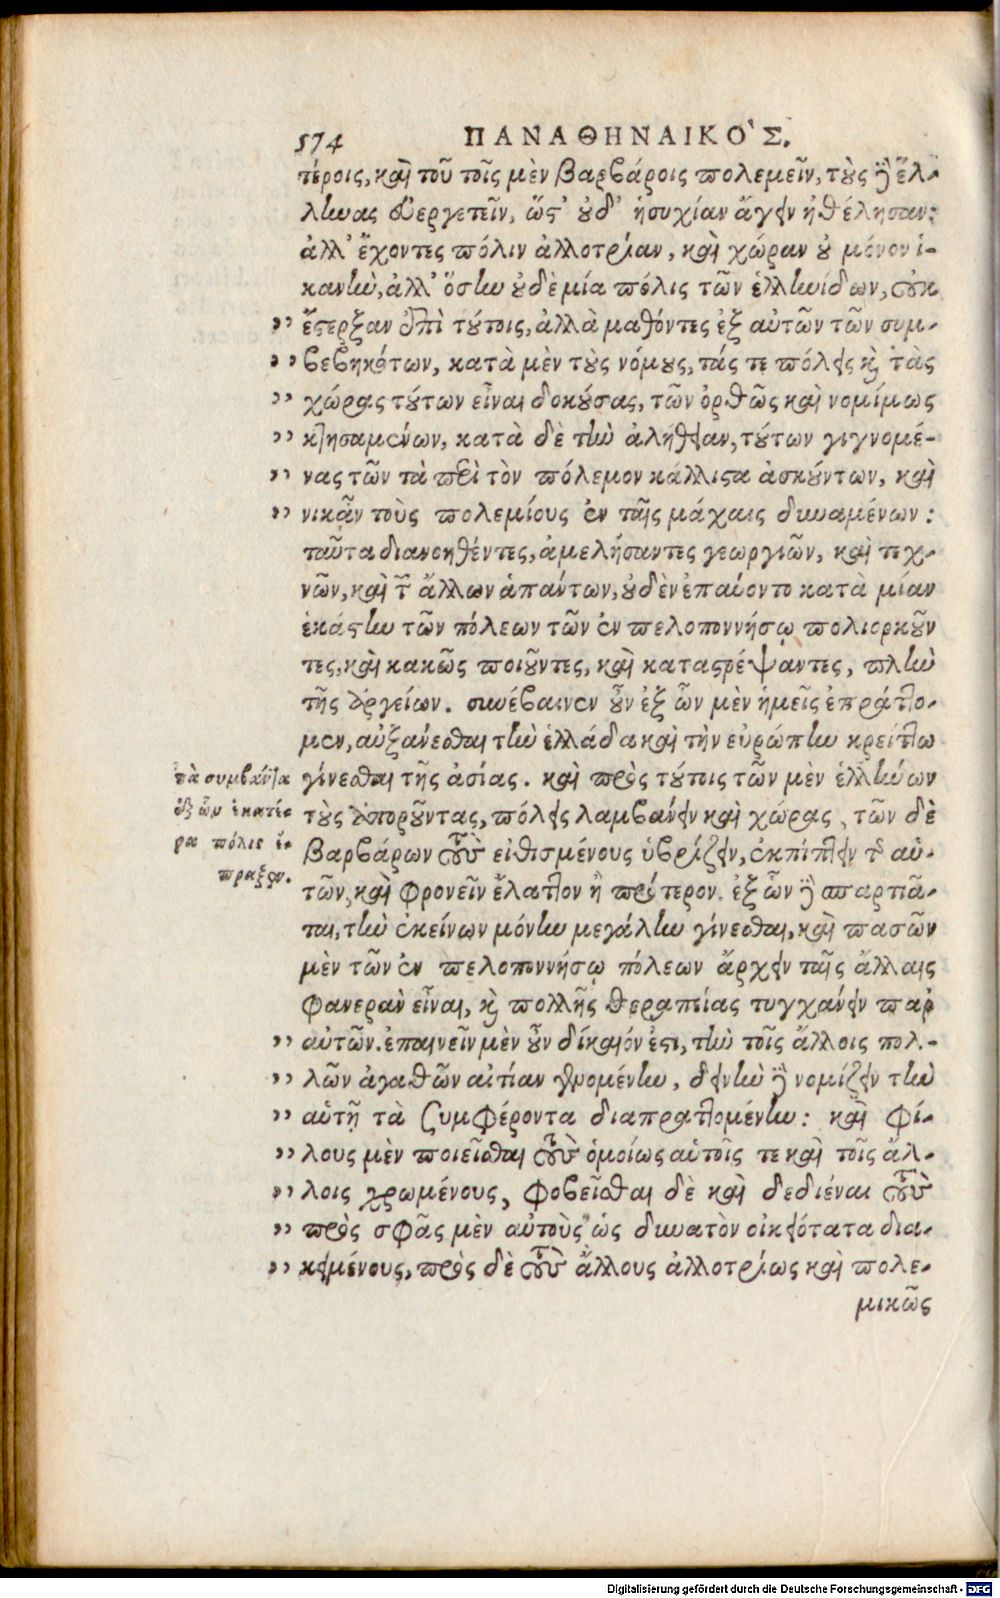 574 ΠΑΝΑΘΗΝΑΙΚΟ`Σ.
τέροις, καὶ τοῦ τοῖς μὲν βαρβάροις πολεμεῖν, τοὺς δὲ ἕλ-
ληνας εὐεργετεῖν, ὥστ' οὐδ' ἡσυχίαν ἄγειν ἠθέλησαν:
ἀλλ' ἔχοντες πόλιν ἀλλοτρίαν, καὶ χώραν οὐ μόνον ἱ-
κανὴν, ἀλλ' ὅσην οὐδὲ μία πόλις τῶν ἑλληνίδων, οὐκ
,, ἔστερξαν ἐπὶ τούτοις, ἀλλὰ μαθόντες ἐξ αὐτῶν τῶν συμ-
,, βεβηκότων, κατὰ μὲν τοὺς νόμους, τάς τε πόλεις καὶ τὰς
,, χώρας τούτων εἶναι δοκούσας, τῶν ὀρθῶς καὶ νομίμως
,, κτησαμένων, κατὰ δὲ τὴν ἀλήθειαν, τούτων γιγνομέ-
,, νας τῶν τὰ περὶ τὸν πόλεμον κάλλιστα ἀσκούντων, καὶ
,, νικᾶν τοὺς πολεμίους ἐν ταῖς μάχαις δυναμένων:
ταῦτα διανοηθέντες, ἀμελήσαντες γεωργιῶν, καὶ τεχ-
νῶν, καὶ τῶν ἄλλων ἁπάντων, οὐδὲν ἐπαύοντο κατὰ μίαν
ἑκάστην τῶν πόλεων τῶν ἐν πελοποννήσῳ πολιορκοῦν
τες, καὶ κακῶς ποιοῦντες, καὶ καταστρέψαντες, πλὴν
τῆς ἀργείων. συνέβαινεν οὖν ἐξ ὧν μὲν ἡμεῖς ἐπράττο-
μεν, αὐξάνεσθαι τὴν ἑλλάδα καὶ τὴν εὐρώπην κρείττω
γίνεσθαι τῆς ἀσίας. καὶ πρὸς τούτοις τῶν μὲν ἑλλήνων
τοὺς ἀποροῦντας, πόλεις λαμβάνειν καὶ χώρας, τῶν δὲ
βαρβάρων τοὺς εἰθισμένους ὑβρίζειν, ἐκπίπτειν τε αὑ-
τῶν, καὶ φρονεῖν ἔλαττον ἢ πρότερον. ἐξ ὧν δὲ σπαρτιᾶ-
ται, τὴν ἐκείνων μόνην μεγάλην γίνεσθαι, καὶ πασῶν
μὲν τῶν ἐν πελοποννήσῳ πόλεων ἄρχειν ταῖς ἄλλαις
φανερὰν εἶναι, καὶ πολλῆς θεραπείας τυγχάνειν παρ'
,, αὐτῶν. ἐπαινεῖν μὲν οὖν δίκαιόν ἐστι, τὴν τοῖς ἄλλοις πολ-
,, λῶν ἀγαθῶν αἰτίαν γενομένην, δεινὴν δὲ νομίζειν τὴν
,, αὑτῇ τὰ συμφέροντα διαπραττομένην: καὶ φί-
,, λους μὲν ποιεῖσθαι τοὺς ὁμοίως αὑτοῖς τε καὶ τοῖς ἄλ-
,, λοις χρωμένους, φοβεῖσθαι δὲ καὶ δεδιέναι τοὺς
,, πρὸς σφᾶς μὲν αὐτοὺς ὡς δυνατὸν οἰκειότατα δια-
,, κειμένους, πρὸς δὲ τοὺς ἄλλους ἀλλοτρίως καὶ πολε-
μικῶς
τὰ συμβάντα
ἐξ ὧν ἑκατέ-
ρα πόλις ἔ-
πραξεν.
Digitalisierung gefördert durch die Deutsche Forschungsgemeinschaft - DFG